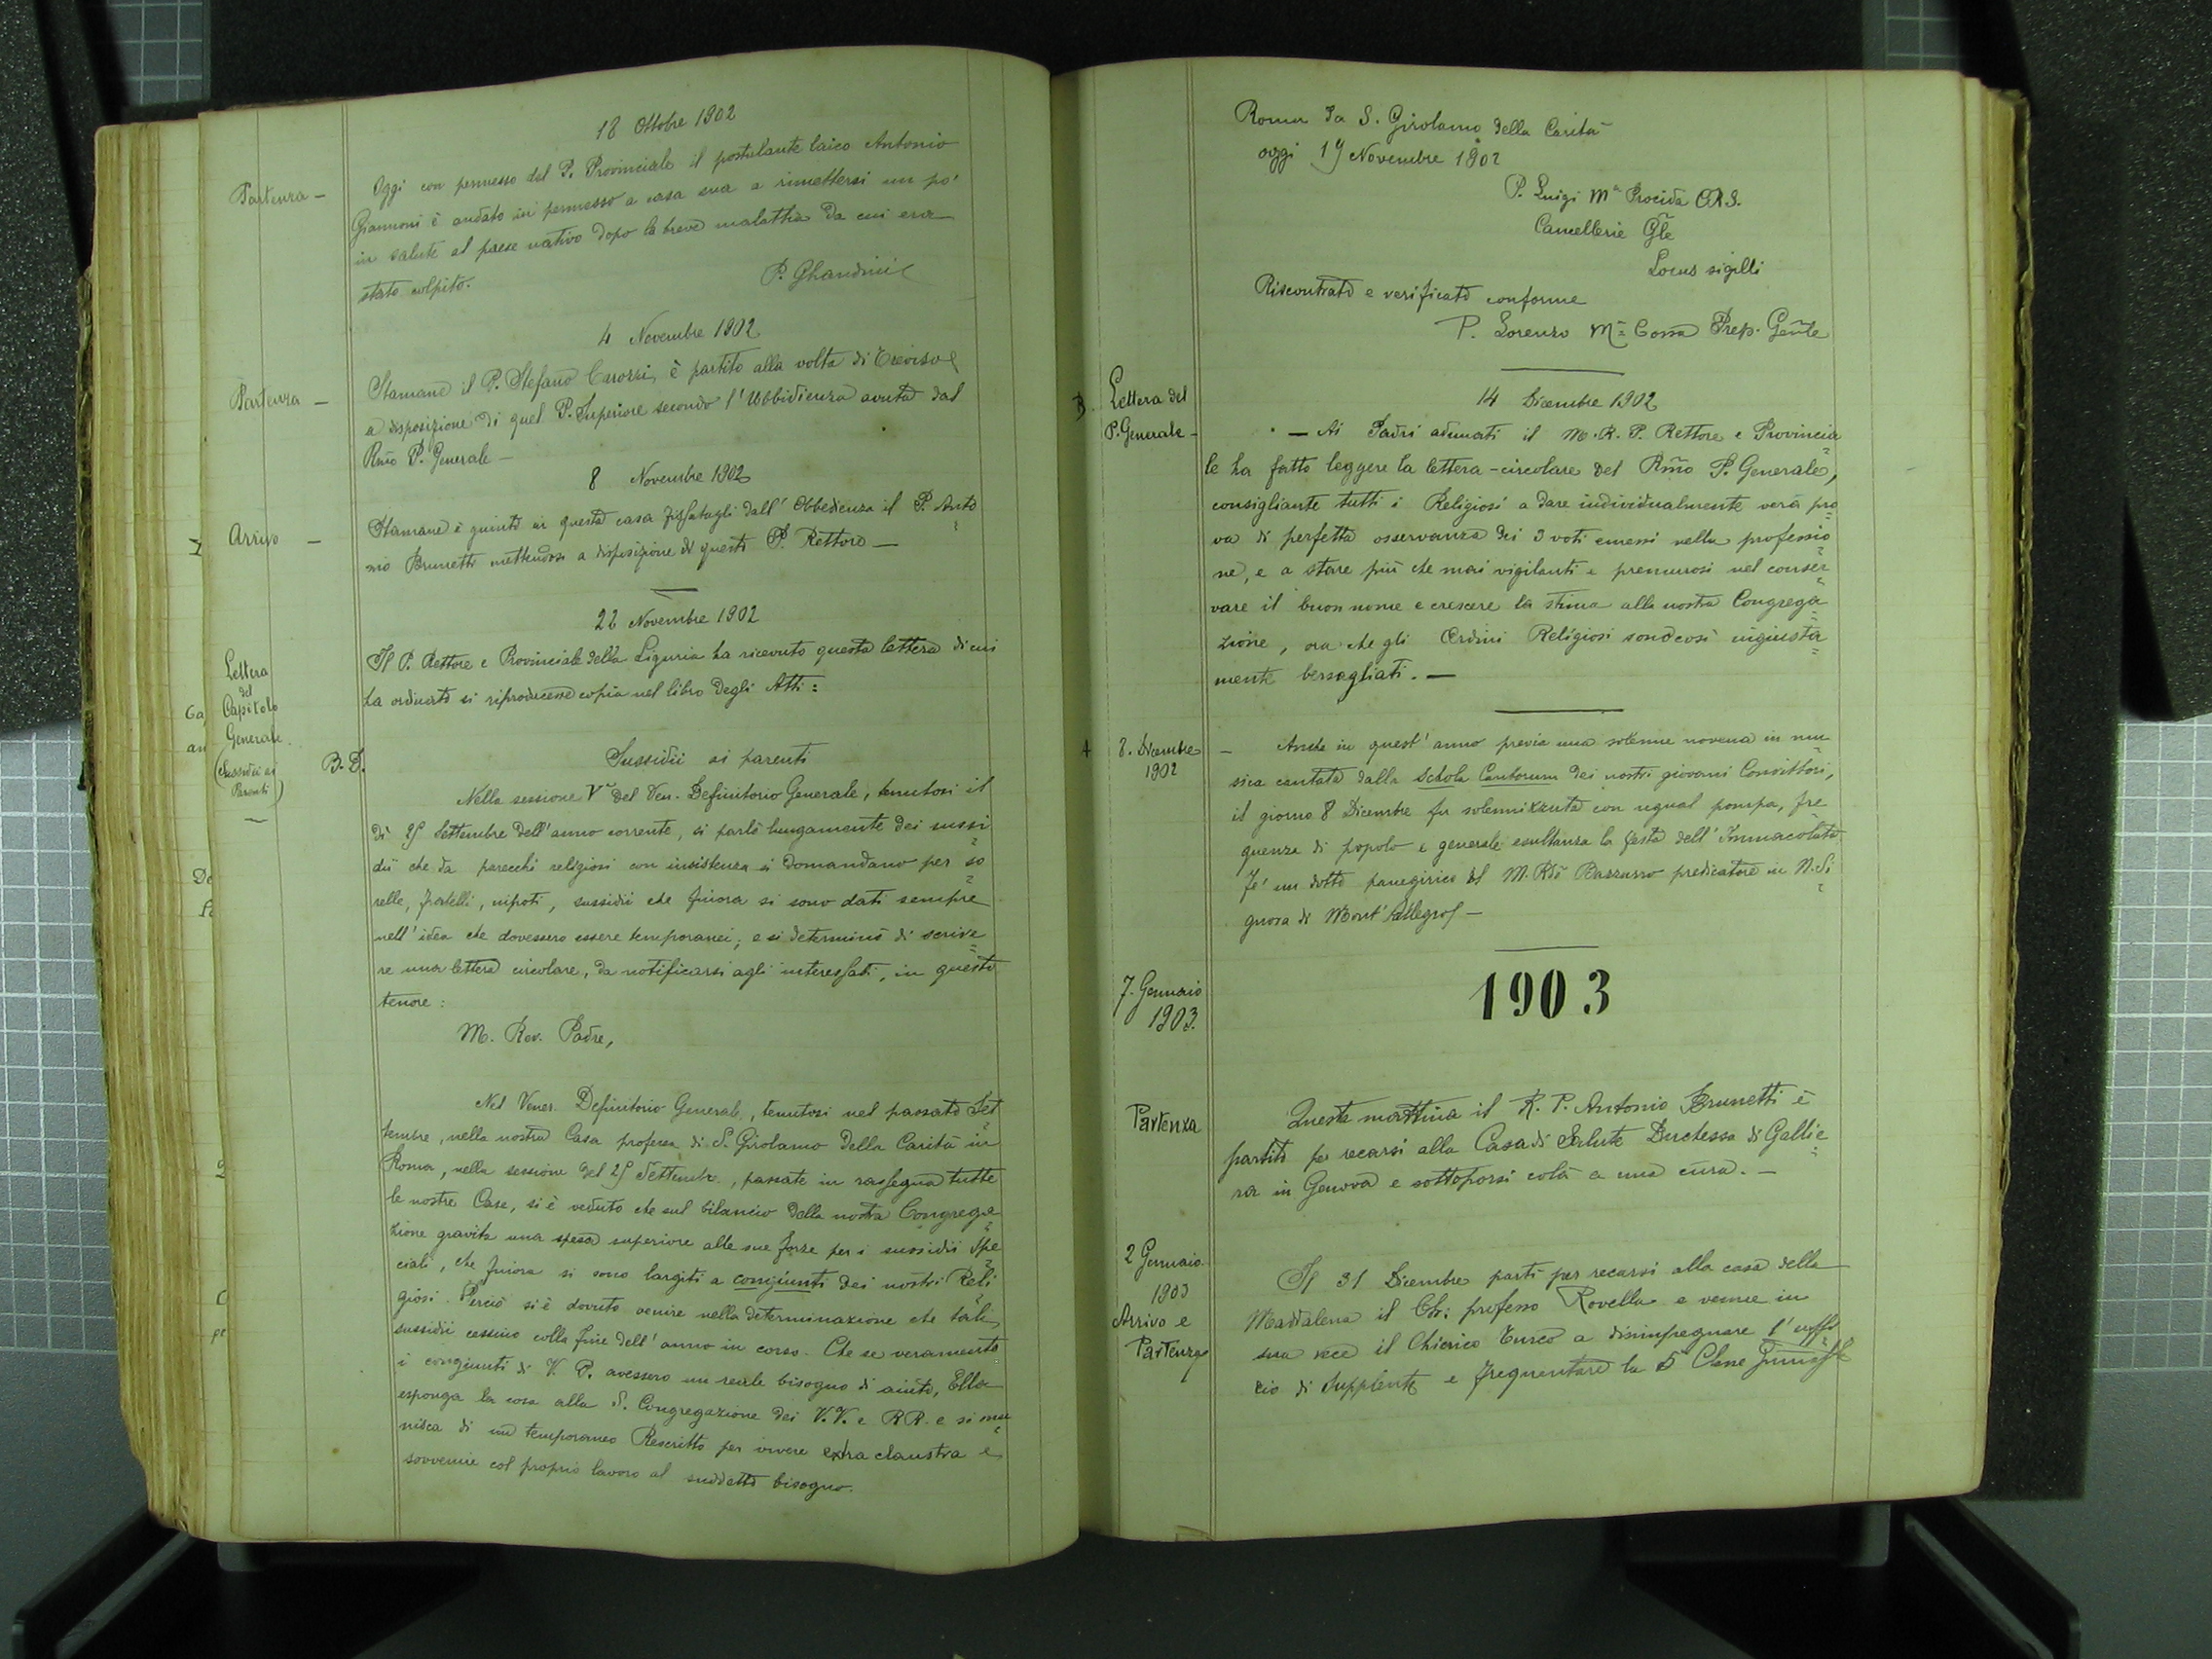 18 Ottobre 1902
Partenza —
Oggi con permesso del P. Provinciale il postulante laico Antonio
Giannoni è andato in permesso a casa sua a rimettersi un po'
in salute al paese nativo dopo la breve malattia da cui era
stato colpito.
P. Ghandini
4 Novembre 1902
Partenza —
Stamane il P. Stefano Carozzi, è partito alla volta di Treviso
a disposizione di quel P. Superiore secondo l'Ubbidienza avuta dal
Rmo P. Generale —
8 Novembre 1902
Arrivo —
Stamane è giunto in questa casa fissatagli dall'Obbedienza il P. Anto
nio Brunetti mettendosi a disposizione di questo P. Rettore —
22 Novembre 1902
Lettera
del
Capitolo
Generale.
(Sussidii ai
Parenti)
Il P. Rettore e Provinciale della Liguria ha ricevuto questa lettera di cui
ha ordinato si riproducesse copia nel libro degli Atti:
B. D.
Sussidii ai parenti
Nella sessione Va del Ven. Definitorio Generale, tenutosi il
dì 25 Settembre dell'anno corrente, si parlò lungamente dei sussi
dii che da parecchi religiosi con insistenza si domandano per so
relle, fratelli, nipoti, sussidii che finora si sono dati sempre
nell'idea che dovessero essere temporanei; e si determinò di scrive
re una lettera circolare, da notificarsi agli interessati, in questo
tenore:
M. Rev. Padre,
Nel Vener. Definitorio Generale, tenutosi nel passato Set
tembre, nella nostra Casa professa di S. Girolamo della Carità in
Roma, nella sessione del 25 Settembr., passate in rassegna tutte
le nostre Case, si è veduto che sul bilancio della nostra Congrega
zione gravita una spesa superiore alle sue forze per i sussidii spe
ciali, che finora si sono largiti a congiunti dei nostri Reli
giosi. Perciò si è dovuto venire nella determinazione che tali
sussidii cessino colla fine dell'anno in corso. Che se veramente
i congiunti di V. P. avessero un reale bisogno di aiuto, Ella
esponga la cosa alla S. Congregazione dei V.V. e R R. e si mu
nisca di un temporaneo Rescritto per vivere extra claustra e
sovvenire col proprio lavoro al suddetto bisogno.
Roma da S. Girolamo della Carità
oggi 19 Novembre 1902
P. Luigi Ma Procida CRS.
Cancelliere Gle
Locus sigilli
Riscontrato e verificato conforme
P. Lorenzo Ma Cossa Prep. Genle
Lettera del
P. Generale —
14 Dicembre 1902
— Ai Padri adunati il M. R. P. Rettore e Provincia
le ha fatto leggere la lettera-circolare del Rmo P. Generale,
consigliante tutti i Religiosi a dare individualmente vera pro
va di perfetta osservanza dei 3 voti emessi nella professio
ne, e a stare più che mai vigilanti e premurosi nel conser
vare il buon nome e crescere la stima alla nostra Congrega
zione, ora che gli Ordini Religiosi sono così ingiusta
mente bersagliati. —
8. Dicembre
1902
— Anche in quest'anno previa una solenne novena in mu
sica cantata dalla Schola Cantorum dei nostri giovani Convittori,
il giorno 8 Dicembre fu solennizzata con ugual pompa, fre
quenza di popolo e generale esultanza la festa dell'Immacolata.
Fe' un dotto panegirico il M. Rdo Bazzurro predicatore in N. Si
gnora di Mont'Allegro —
1903
7. Gennaio
1903.
Partenza
Questa mattina il R. P. Antonio Brunetti è
partito per recarsi alla Casa di Salute Duchessa di Gallie
ra in Genova e sottoporsi colà a una cura. —
2 Gennaio
1903
Arrivo e
Partenza
Il 31 Dicembre partì per recarsi alla casa della
Maddalena il Ch: professo Rovella e venne in
sua vece il Chierico Turco a disimpegnare l'uffi
cio di Supplente e frequentare la 5a Classe